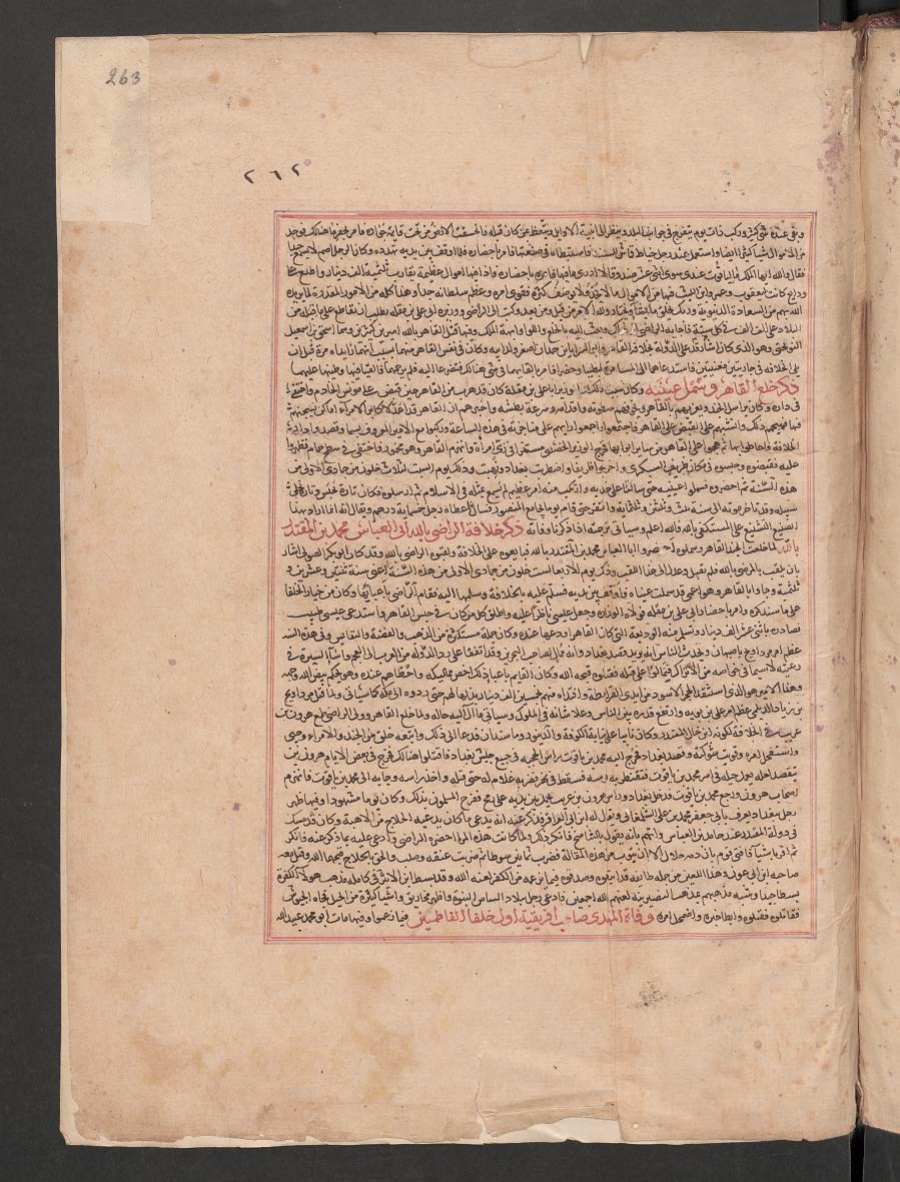 263
٢٦٢
وبقى عنده شئ كثير وركب ذات يوم يتفرج في جوانب البلد وينظر الى ابنية الاوايل ويتعظ بمن كان قبله فانخسفت الارض من تحت قوايم فرسه فامر بحفر ما هنالك فوجد
من الاموال شيا كثيرا ايضا واستعمل عند رجل خياط قماش
فقال والله ايها الملك ما لياقوت عندى سوى اثنى عشر صندوقا لا ادرى ما فيها فامر باحضارها فاذا فيها اموال عظيمة تقارب ثلثمية الف دينار واطلع على
ودايع كانت ليعقوب وعمرو ابن الليث فيها من الاموال ما لا يحد ولا يوصف كثرة فقوى امره وعظم سلطانه جدا وهذا كله من الامور المقدرة لما يريده
الله بهم من السعادة الدنيوية وربك يخلق ما يشاء ويختار ولله الامر من قبل ومن بعد وكتب الى الراضى ووزيره ابى على بن مقلة يطلب ان يقاطع على ما قبله من
البلاد على الف الف في كل سنة فاجابه الراضى الى ذلك وبعث اليه بالخلع واللوا وابهة الملك وفيها قتل القاهر بالله اميرين كبيرين وهما اسحق بن اسمعيل
النوبختى وهو الذى كان اشار على بخلافة القاهر وابو السرايا بن حمدان اصغر ولد ابيه وكان في نفس القاهر منهما بسبب انهما زايداه من قبل ان
يلى الخلافة في جاريتين مغنيتين فاستدعاهما الى المسامرة فتطيبا وحضرا فامر بالقايهما في جب هنالك فتضرعا اليه فلم يرحمهما بل القيا فيها وطينها عليهما
ذكر خلع القاهر وسمل عينيه وكان سبب ذلك ان الوزير ابا على بن مقلة كان قد هرب من القاهر حين قبض على مونس الخادم واختفى
في داره وكان يراسل الجند ويغريهم بالقاهر ويخوفهم سطوته واقدامه وسرعة بطشه واخبرهم ان القاهر قد اعد لاكابر الامراء اماكن يسجنهم
فيها فهيجهم ذلك على القبض على القاهر فاجتمعوا واجمعوا رايهم على مناجزته في هذه الساعة وركبوا مع الامير المعروف بسيما وقصدوا دار
الخلافة فاحاطوا بها ثم هجموا على القاهر من ساير ابوابها فخرج الوزير الخصيبى مستترا في زى امراة وانهزم القاهر وهو مخمور فاختفى في سطح حمام فظهروا
عليه فقبضوه وحبسوه في مكان طريف السبكرى واخرجوا طريفا واضطربت بغداد ونهبت وذلك يوم السبت لثلاث خلون من جمادى الاولى من
هذه السنة ثم احضروه فسملوا عينيه حتى سالتا على خديه وارتكب منه امر عظيم لم يسمع مثله في الاسلام ثم ارسلوه فكان تارة يحبس وتارة يخلى
سبيله وقد تاخر موته الى سنة ثلث وثلثين وثلثماية وافتقر حتى قام يوما بجامع المنصور فسال الناس فاعطاه رجل خمسماية درهم ويقال انه انما اراد بهذا
الصنيع التشنيع على المستكفى بالله فالله اعلم وسياتى ترجمته اذا ذكرنا وفاته ذكر خلافة الراضى بالله ابى العباس محمد بن المقتدر
بالله لما خلعت الجند القاهر وسملوه احضروا ابا العباس محمد بن المقتدر بالله فبايعوه على الخلافة ولقبوه الراضى بالله وقد كان ابو بكر الصولى اشار
بان يلقب بالمرضى بالله فلم يقبل وعدل الى هذا اللقب وذلك يوم الاربعا لست خلون من جمادى الاولى من هذه السنة اعنى سنة ثنتين وعشرين و
ثلثمية وجاوا بالقاهر وهو اعمى قد سملت عيناه فاوقف بين يديه فسلم عليه بالخلافة وسلمها اليه فقام الراضى باعبائها وكان من خيار الخلفا
على ما سنذكره وامر باحضار ابى على بن مقلة فولاه الوزارة وجعل على بن عيسى ناظرا عليه واطلق كل من كان في حبس القاهر واستدعى عيسى طبيب
فصادره بماتى الف دينار وتسلم منه الوديعة التى كان القاهر اودعها عنده وكان جملة مستكثرة من الذهب والفضة والنفايس وفى هذه السنه
عظم امر مرداويج باصبهان وتحدث الناس انه يريد قصد بغداد وانه ممالئ لصاحب البحرين وقد اتفقا على رد الدولة من العرب الى العجم واساء السيرة في
رعيته لا سيما في خواصه من الاتراك فتمالوا على قتله فقتلوه قبحه الله وكان القايم باعباء ذلك اخص مماليكه واحظاهم عنده وهو بجكم بيض الله وجهه
وهذا الامير هو الذى استنقذ الحجر الاسود من ايدى القرامطة وافتداه منهم بخمسين الف دينار بذلها لهم حتى ردوه الى مكة كما سياتى ولما قتل مرداويج
بن زياد الديلمى عظم امر على بن بويه وارتفع قدره بين الناس وعلا شانه في الملوك وسياتى ما آل اليه حاله ولما خلع القاهر وولى الراضى طمع هرون بن
غريب في الخلافة لكونه ابن خال المقتدر وكان نايبا على نيابة الكوفة والدينور وماسبذان فدعا الى ذلك واتبعه خلق من الجند والامراء وجبى
واستفحل امره وقويت شوكته وقصد بغداد فخرج اليه محمد بن ياقوت راس الحجبة في جميع جيش بغداد فاقتتلوا هنالك فخرج في بعض الايام هرون بن
يتقصد لعله يعمل حيلة في اسر محمد بن ياقوت فتقنطر به فرسه فسقط في نهر فضربه غلام له حتى قتله واخذ راسه وجا به الى محمد بن ياقوت فانهزم
اصحاب هرون ورجع محمد بن ياقوت فدخل بغداد وراس هرون بن غريب يحمل بين يديه على رمح ففرح المسلمون بذلك وكان يوما مشهودا وفيها ظهر
رجل ببغداد يعرف بابى جعفر محمد بن على الشلمغانى ويقال له ابن ابى العزاقر فذكر عنه انه يدعى ما كان يدعيه الحلاج من الالهية وكان قد مسك
في دولة المقتدر عند حامد بن العباس واتهم بانه يقول بالتناسخ فانكر ذلك ولما كانت هذه المرة احضره الراضى وادعى عليه بما ذكر عنه فانكر
ثم اقر باشيا فافتى قوم بان دمه حلال الا ان يتوب من هذه المقالة فضرب ثمانين سوطا ثم ضربت عنقه وصلب والحق بالحلاج قبحهما الله وقتل معه
صاحبه ابن ابى عون وهذا اللعين من جملة طايفة قد اتبعوه وصدقوه فيما يزعمه من الكفر لعنه الله وقد بسط ابن الاثير في كامله مذهب هولاء الكفرة
بسطا جيدا وشبه مذهبهم بمذهب النصيرية لعنهم الله اجمعين وادعى رجل ببلاد الشاش النبوة واظهر مخاريق واشيا كثيرة من الحيل فجاءه الجيوش
فقاتلوه فقتلوه وانطفا خبره واضمحل امره وفاة المهدى صاحب افريقية اول خلفا الفاطميين فيما زعموا وفيها مات ابو محمد عبيد الله